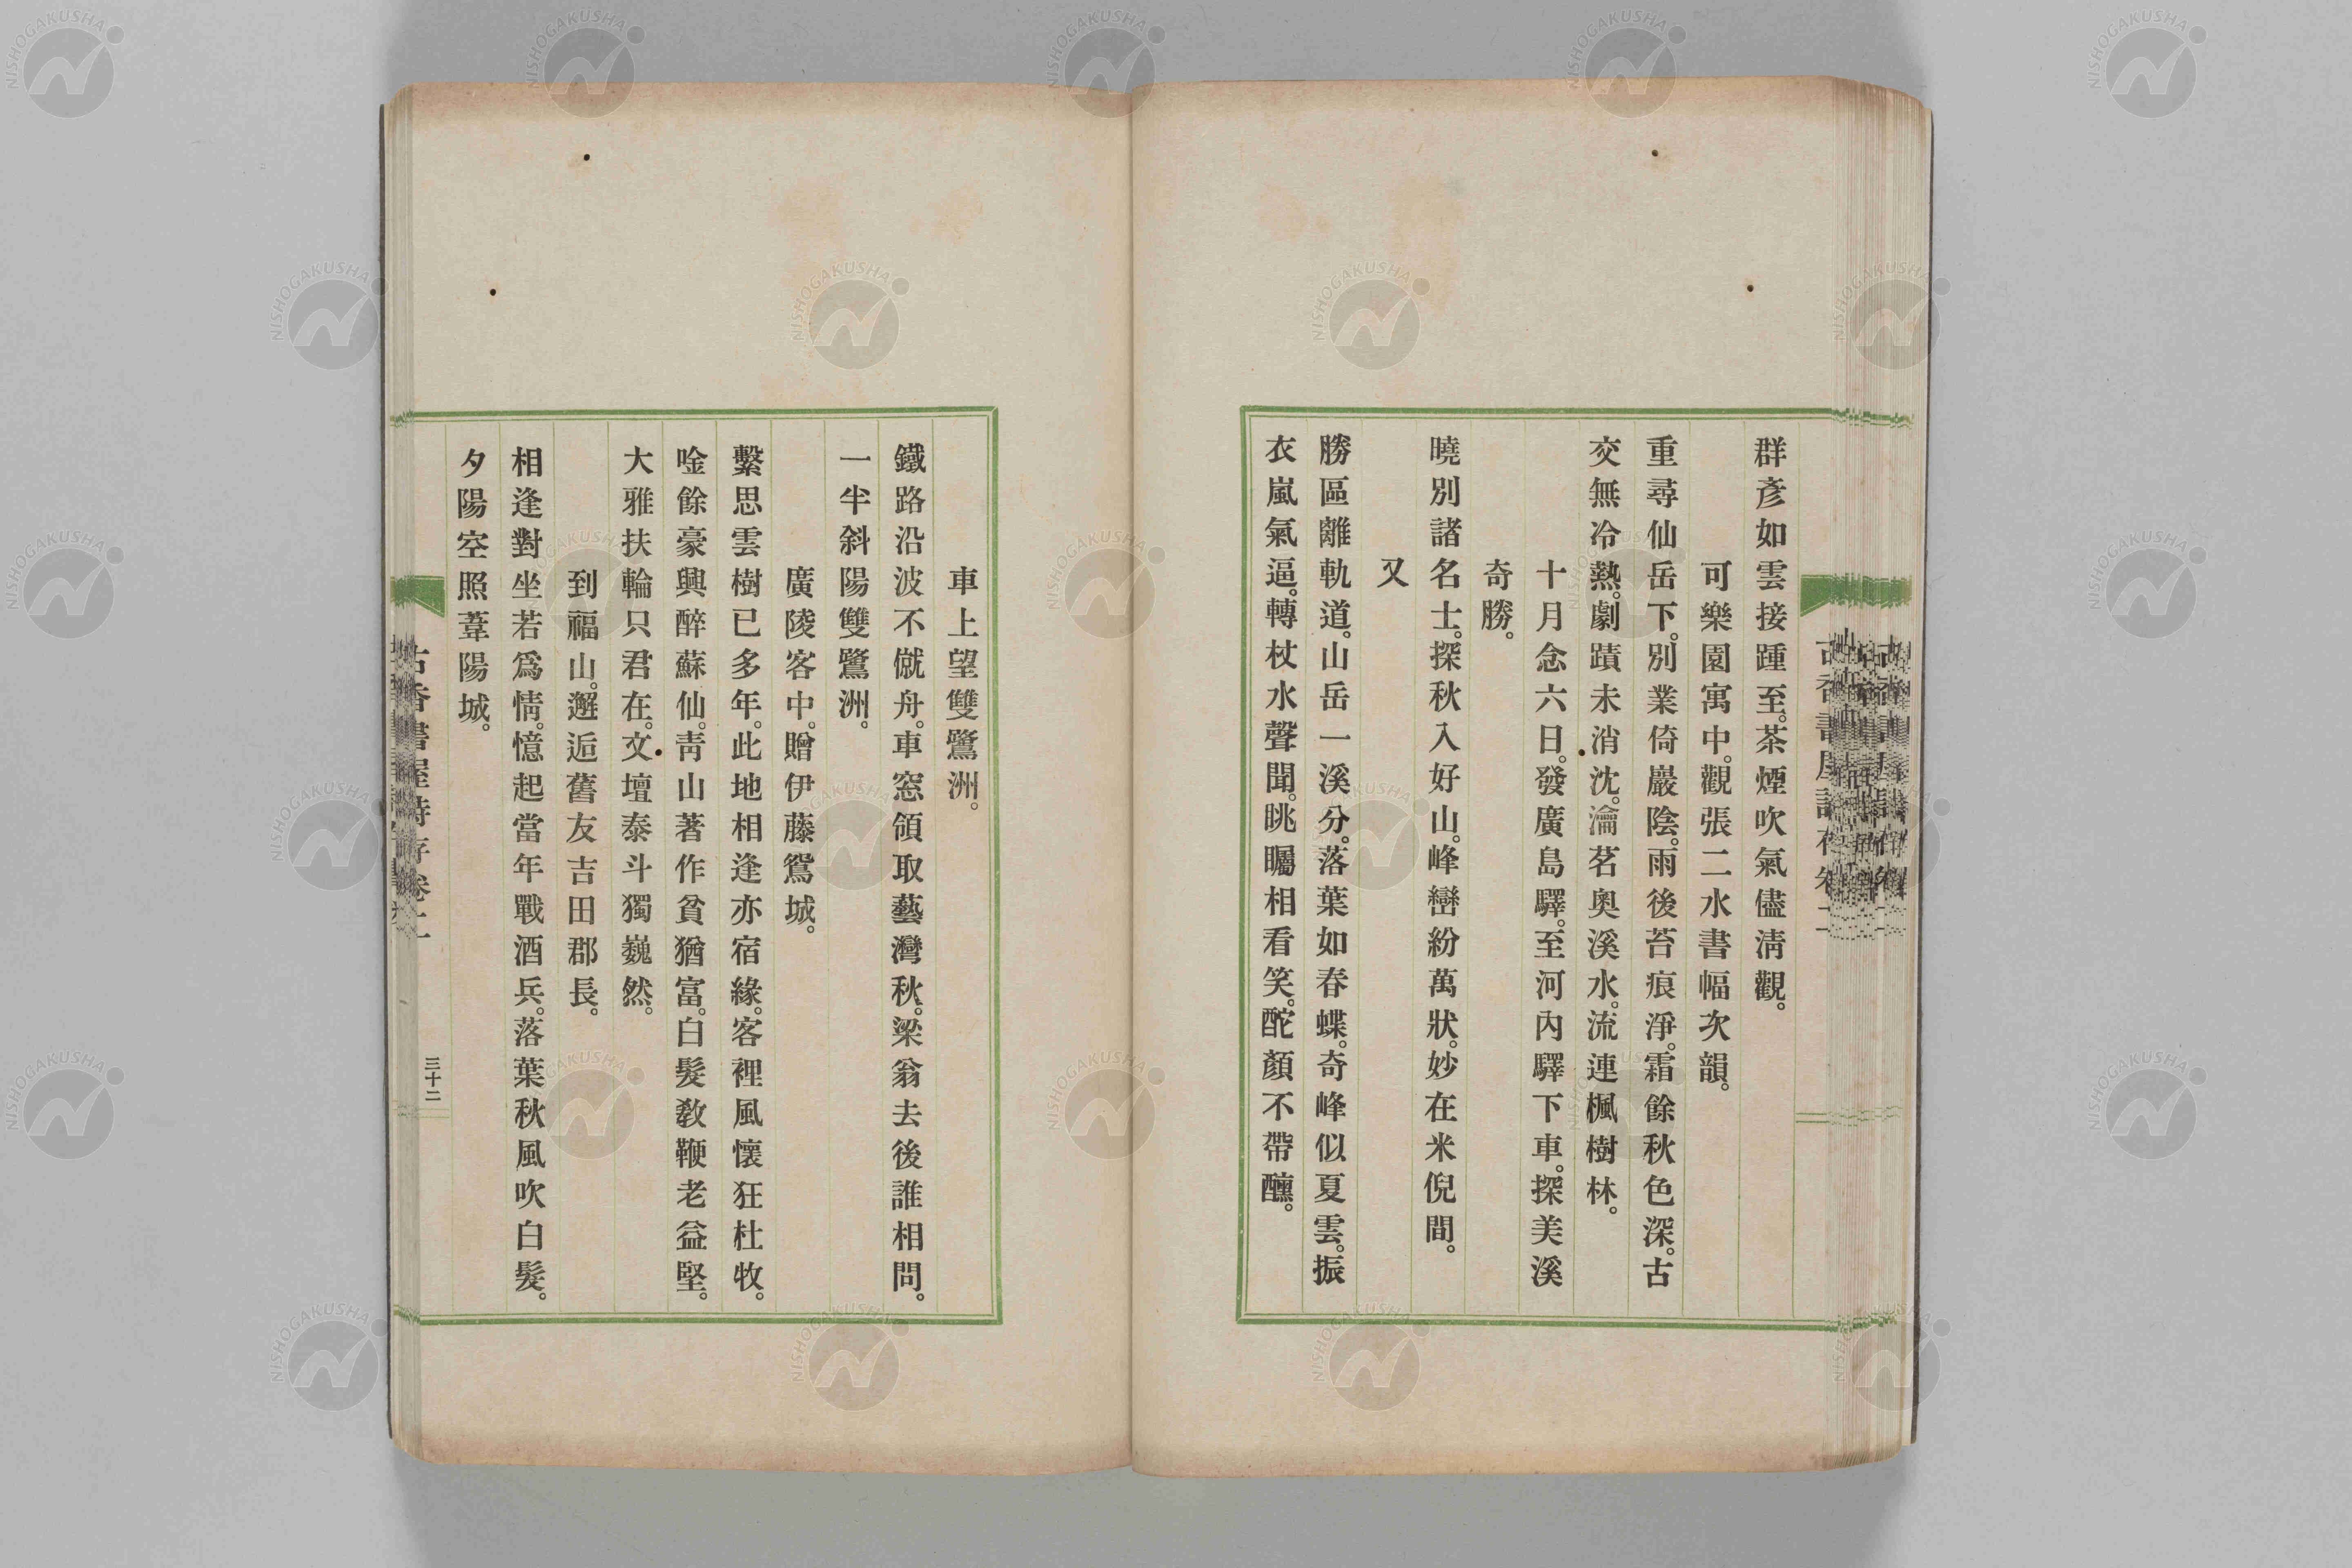 群彥如雲接踵至。茶煙吹氣儘淸觀。
可樂園寓中。觀張二水書幅次韻。
重尋仙岳下。別業倚巖陰。雨後苔痕淨。霜餘秋色深。古
交無冷熱。劇蹟未消沈。瀹茗奧溪水。流連楓樹林。
十月念六日。發廣島驛。至河內驛下車。探美溪
奇勝。
曉別諸名士。探秋入好山。峰巒紛萬狀。妙在米倪間。
又
勝區離軌道。山岳一溪分。落葉如春蝶。奇峰似夏雲。振
衣嵐氣逼。轉杖水聲聞。眺矚相看笑。酡顏不帶醺。
車上望雙鷺洲。
鐵路沿波不僦舟。車窓領取藝灣秋。梁翁去後誰相問。
一半斜陽雙鷺洲。
廣陵客中。贈伊藤鴛城。
繫思雲樹已多年。此地相逢亦宿緣。客裡風懷狂杜牧。
唫餘豪興醉蘇仙。靑山著作貧猶富。白髮敎鞭老益堅。
大雅扶輪只君在。文壇泰斗獨巍然。
到福山。邂逅舊友吉田郡長。
相逢對坐若爲情。憶起當年戰酒兵。落葉秋風吹白髮。
夕陽空照葦陽城。
古香書屋詩存卷二
三十二
NISHOGAKUSHA